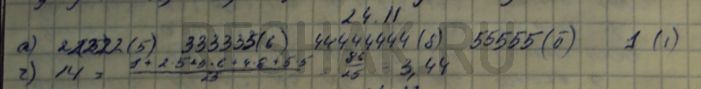 24.11
а) 22222(5) 333333(6) 44444444(8) 55555(5) 1 (1)
2) М = 1+2·5+3·6+4·8+5·5 / 25 = 86/25 = 3,44